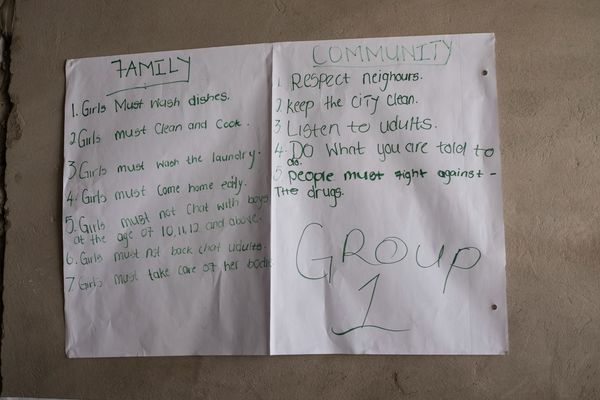 FAMILY
1. Girls Must wash dishes.
2 Girls must Clean and Cook.
3 Girls must wash the laundry.
4. Girls must Come home early.
5. Girls must not Chat with boys
at the age of 10, 11, 12 and above.
6. Girls must not back chat udults.
7. Girls must take care of her bodies
COMMUNITY
1. Respect neighours.
2 keep the CITY Clean.
3 Listen to udults.
4. DO What you are told to
do.
5 people must fight against -
The drugs.
GROUP
1